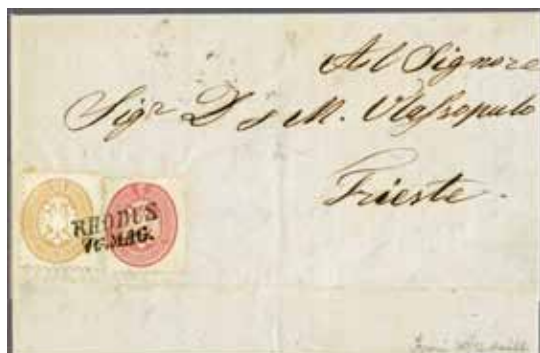 Al Signore
Sigr D & M. Vlassopulo
Trieste.
RHODUS
16. MAG.